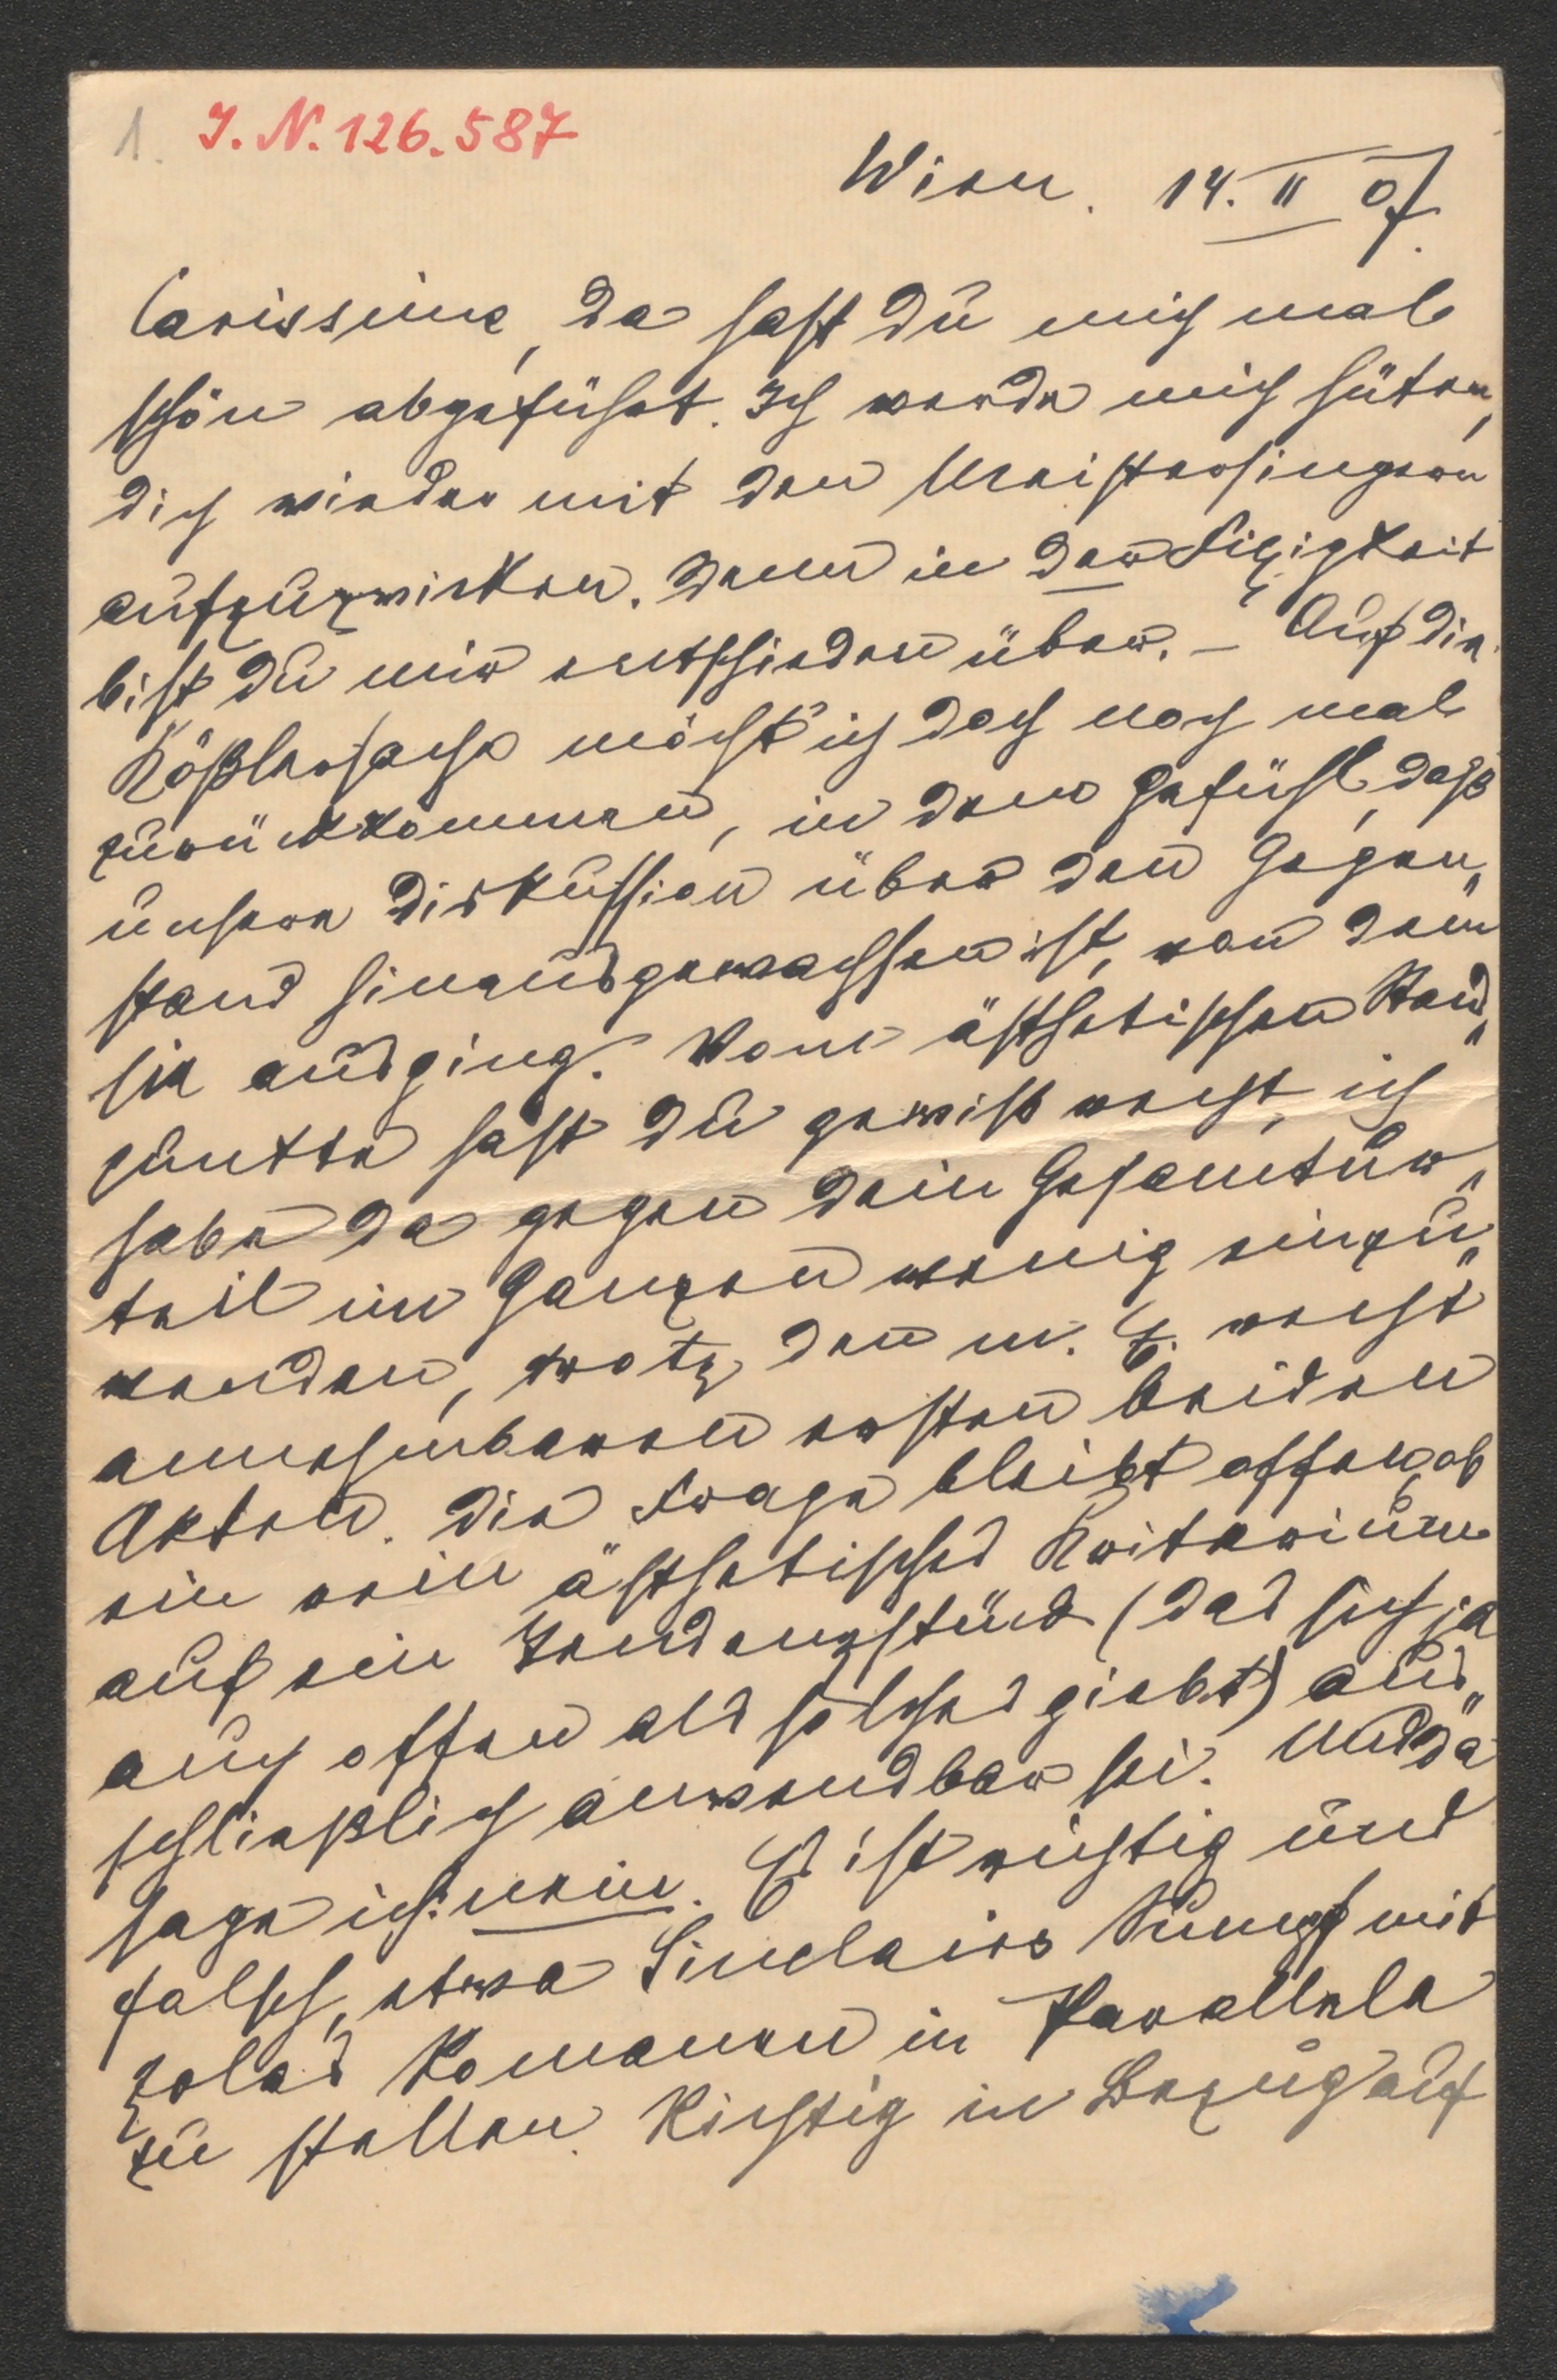 1. I. N. 126.587
Wien. 14. II 07.
Carissime, da hast Du mich mal
schön abgeführt. Ich werde mich hüten,
dich wieder mit den Meistersingern
aufzuzwicken. Denn in der Fixigkeit
bist Du mir entschieden über. – Auf die
Rößlersache möcht' ich doch noch mal
zurückkommen, in dem Gefühl, daß
unsere Diskussion über den Gegen„
stand hinausgewachsen ist, von dem
sie ausging. Vom ästhetischen Stand„
punkte hast Du gewiß recht, ich
habe da gegen dein Gesamtur„
teil im Ganzen wenig einzu„
wenden, trotz den m. E. recht
annehmbaren ersten beiden
Akten. Die Frage bleibt offen, ob
ein rein ästhetisches Kriterium
auf ein Tendenzstück (das sich ja
auch offen als solches giebt) aus„
schließlich anwendbar sei. Und da
sage ich: nein. Es ist richtig und
falsch, etwa Sinclairs Sumpf mit
Zolas Romanen in Parallele
zu stellen. Richtig in Bezug auf